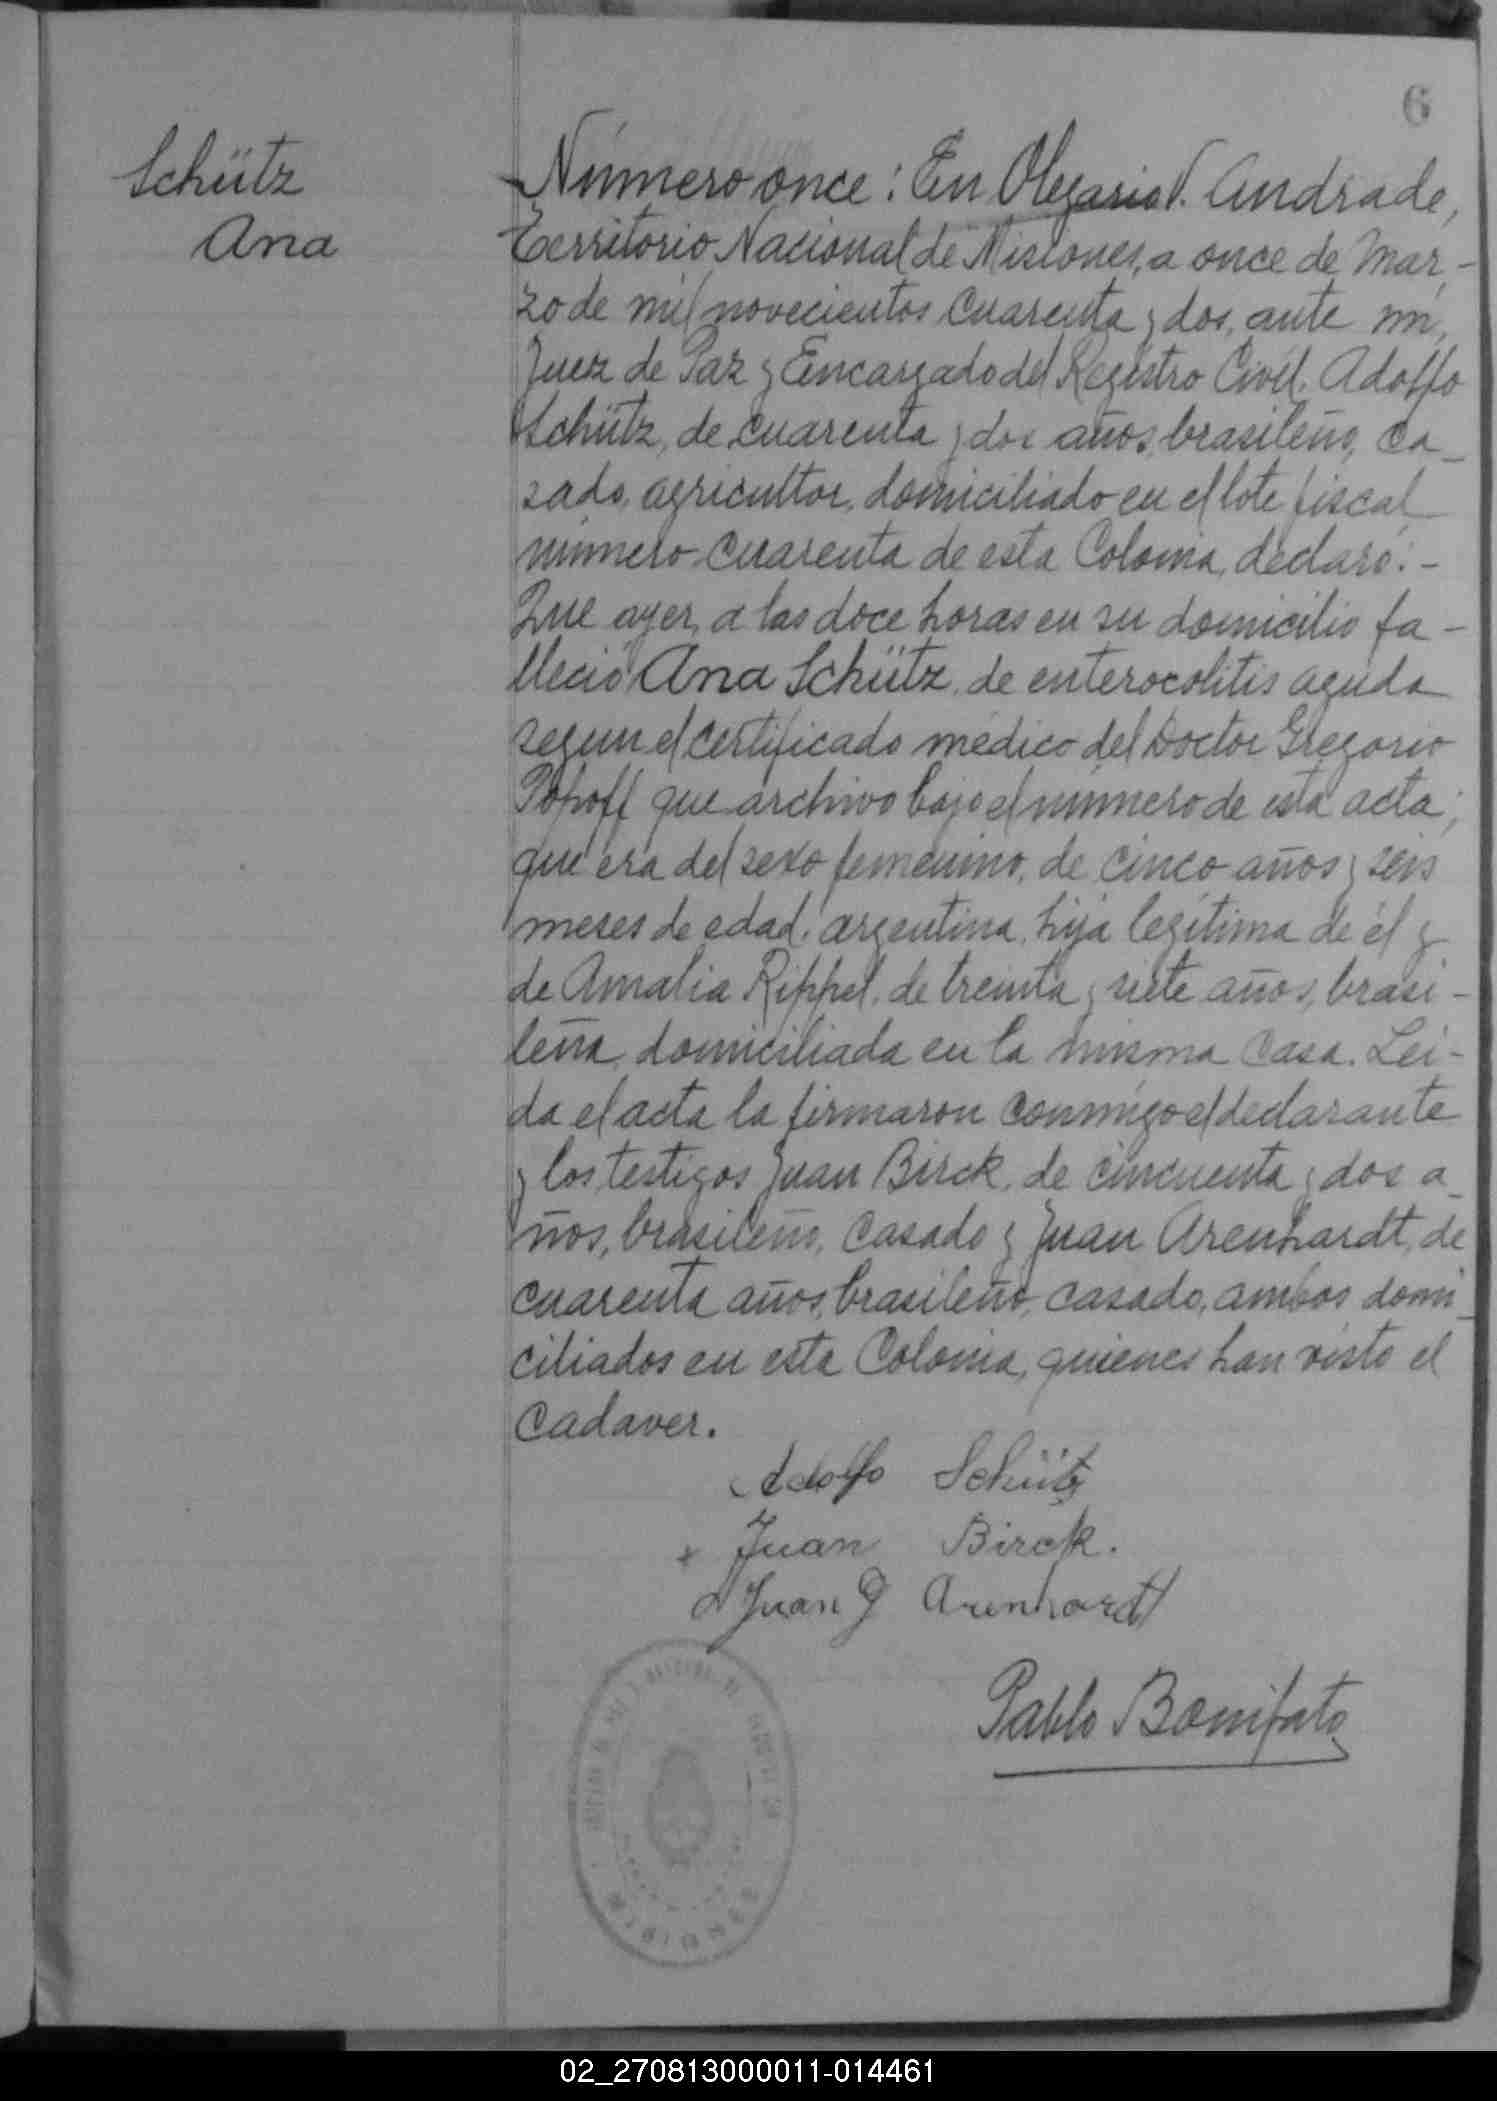 6
Schütz
Ana
Número once: En Olegario V. Andrade,
Territorio Nacional de Misiones, a once de Mar-
zo de mil novecientos cuarenta y dos, ante mí,
Juez de Paz y Encargado del Registro Civil, Adolfo
Schütz, de cuarenta y dos años, brasileño, ca-
sado, agricultor, domiciliado en el lote fiscal
número cuarenta de esta Colonia, declaró:-
Que ayer, a las doce horas en su domicilio fa-
lleció Ana Schütz, de enterocolitis aguda
segun el certificado médico del Doctor Gregorio
Popoff que archivo bajo el número de esta acta;
que era del sexo femenino, de cinco años y seis
meses de edad, argentina, hija legítima de él y
de Amalia Rippel, de treinta y siete años, brasi-
leña, domiciliada en la misma casa. Lei-
da el acta la firmaron conmigo el declarante
y los testigos Juan Birck, de cincuenta y dos a-
ños, brasileño, casado y Juan Arenhardt, de
cuarenta años, brasileño, casado, ambos domi-
ciliados en esta Colonia, quienes han visto el
cadaver.
Adolfo Schütz
x Juan Birck.
Juan J Arenhardt
Pablo Bonifato
MISIONES
02_270813000011-014461